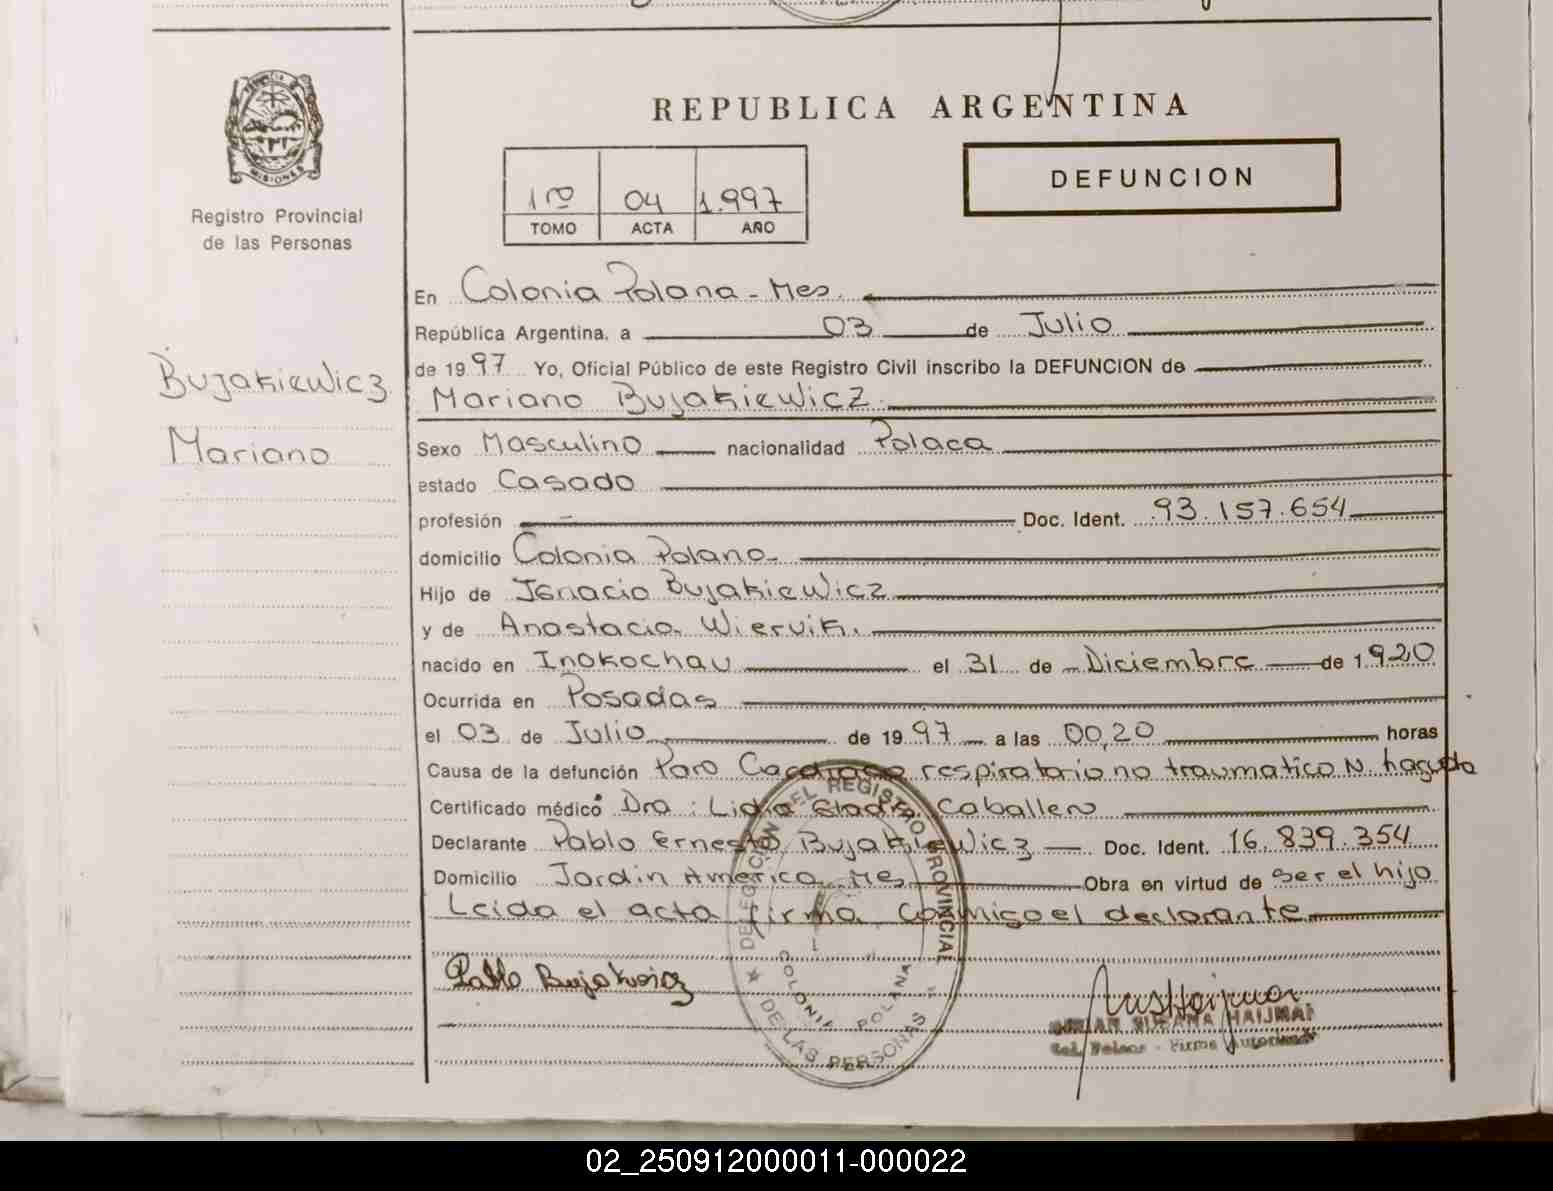 REPUBLICA ARGENTINA
DEFUNCION
1ro 04 1.997
TOMO ACTA AÑO
MISIONES
Registro Provincial
de las Personas
Bujakiewicz
Mariano
En Colonia Polana - Mes.
República Argentina, a 03 de Julio
de 1997 Yo, Oficial Público de este Registro Civil inscribo la DEFUNCION de
Mariano Bujakiewicz
Sexo Masculino nacionalidad Polaca
estado Casado
profesión - Doc. Ident. 93.157.654
domicilio Colonia Polana
Hijo de Ignacio Bujakiewicz
y de Anastacia Wiervik.
nacido en Inokochau el 31 de Diciembre de 1.920
Ocurrida en Posadas
el 03 de Julio de 1997 a las 00,20 horas
Causa de la defunción Paro Cardiaco respiratorio no traumatico N.
Certificado médico Dra: Lidia Gladis Caballero
Declarante Pablo Ernesto Bujakiewicz Doc. Ident. 16.839.354
Domicilio Jardin America Mes Obra en virtud de ser el hijo
Leida el acta firma Conmigo el declarante
Pablo
DELEGACION DEL REGISTRO PROVINCIAL
DE LAS PERSONAS
COLONIA POLANA
SUSANA
Firma
02_250912000011-000022